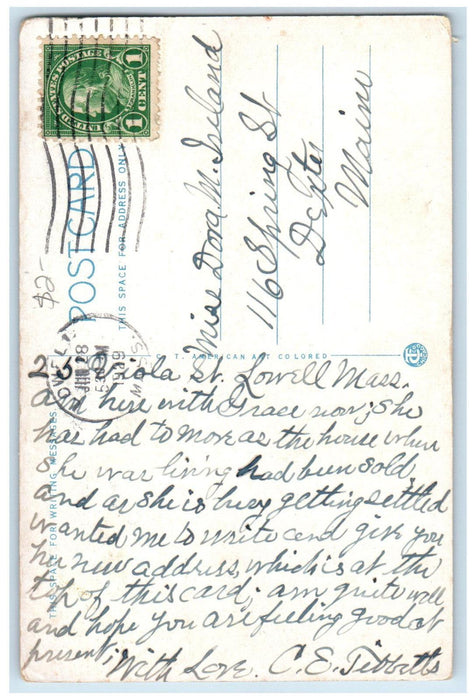 UNITED STATES POSTAGE
1 CENT 1
POST CARD
THIS SPACE FOR ADDRESS ONLY
$2-
LOWELL
JUN 28
5 PM
1929
MASS.
Miss Dora M. Ireland
116 Spring St
Dexter
Maine
C. T. AMERICAN ART COLORED
THIS SPACE FOR WRITING MESSAGES
Viola St. Lowell Mass.
am here with Grace now; she
has had to move as the house where
she was living had been sold,
and as she is busy getting settled
wanted me to write and give you
her new address, which is at the
top of this card; am quite well
and hope you are feeling good at
present, With Love. C. E. Tibbetts